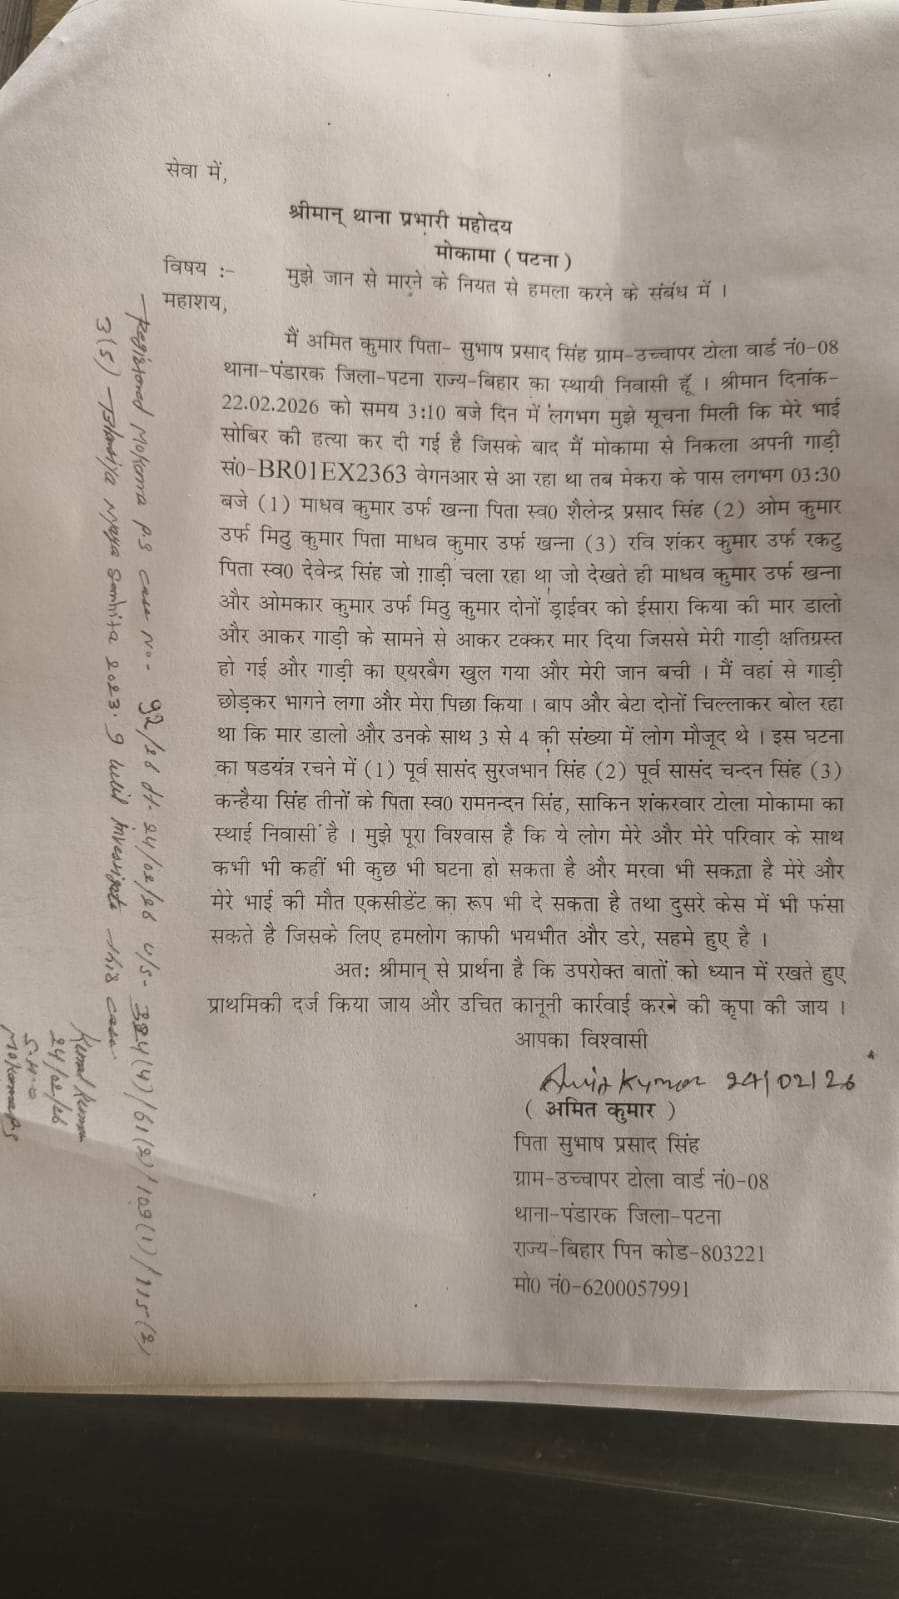 सेवा में,
श्रीमान् थाना प्रभारी महोदय
मोकामा ( पटना )
विषय :- मुझे जान से मारने के नियत से हमला करने के संबंध में ।
महाशय,
मैं अमित कुमार पिता- सुभाष प्रसाद सिंह ग्राम-उच्चापर टोला वार्ड नं0-08
थाना-पंडारक जिला-पटना राज्य-बिहार का स्थायी निवासी हूँ । श्रीमान दिनांक-
22.02.2026 को समय 3:10 बजे दिन में लगभग मुझे सूचना मिली कि मेरे भाई
सोबिर की हत्या कर दी गई है जिसके बाद मैं मोकामा से निकला अपनी गाड़ी
सं0-BR01EX2363 वेगनआर से आ रहा था तब मेकरा के पास लगभग 03:30
बजे (1) माधव कुमार उर्फ खन्ना पिता स्व0 शैलेन्द्र प्रसाद सिंह (2) ओम कुमार
उर्फ मिठु कुमार पिता माधव कुमार उर्फ खन्ना (3) रवि शंकर कुमार उर्फ रकटु
पिता स्व0 देवेन्द्र सिंह जो ग़ाड़ी चला रहा था जो देखते ही माधव कुमार उर्फ खन्ना
और ओमकार कुमार उर्फ मिठु कुमार दोनों ड्राईवर को ईसारा किया की मार डालो
और आकर गाड़ी के सामने से आकर टक्कर मार दिया जिससे मेरी गाड़ी क्षतिग्रस्त
हो गई और गाड़ी का एयरबैग खुल गया और मेरी जान बची । मैं वहां से गाड़ी
छोड़कर भागने लगा और मेरा पिछा किया । बाप और बेटा दोनों चिल्लाकर बोल रहा
था कि मार डालो और उनके साथ 3 से 4 की संख्या में लोग मौजूद थे । इस घटना
का षडयंत्र रचने में (1) पूर्व सासंद सुरजभान सिंह (2) पूर्व सासंद चन्दन सिंह (3)
कन्हैया सिंह तीनों के पिता स्व0 रामनन्दन सिंह, साकिन शंकरवार टोला मोकामा का
स्थाई निवासी है । मुझे पूरा विश्वास है कि ये लोग मेरे और मेरे परिवार के साथ
कभी भी कहीं भी कुछ भी घटना हो सकता है और मरवा भी सकता है मेरे और
मेरे भाई की मौत एकसीडेंट का रूप भी दे सकता है तथा दुसरे केस में भी फंसा
सकते है जिसके लिए हमलोग काफी भयभीत और डरे, सहमे हुए है ।
अत: श्रीमान् से प्रार्थना है कि उपरोक्त बातों को ध्यान में रखते हुए
प्राथमिकी दर्ज किया जाय और उचित कानूनी कार्रवाई करने की कृपा की जाय ।
आपका विश्वासी
Amit Kumar 24/02/26
( अमित कुमार )
पिता सुभाष प्रसाद सिंह
ग्राम-उच्चापर टोला वार्ड नं0-08
थाना-पंडारक जिला-पटना
राज्य-बिहार पिन कोड-803221
मो0 नं0-6200057991
Registered Mokama P.S case No:- 92/26 dt. 24/02/26 U/S- 324(4)/61(2)/109(1)/115(2)
3(5) - Bhartiya Nyaya Sanhita 2023. I will investigate this case
Kumar
24/02/26
S.H.O
Mokama PS